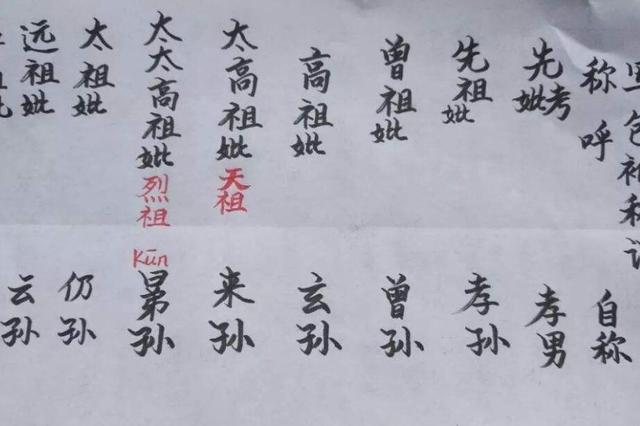 称呼
自称
先考妣
孝男
先祖妣
孝孙
曾祖妣
曾孙
高祖妣
玄孙
太高祖妣
天祖
来孙
太太高祖妣
烈祖
Kūn
晜孙
太祖妣
仍孙
远祖妣
云孙